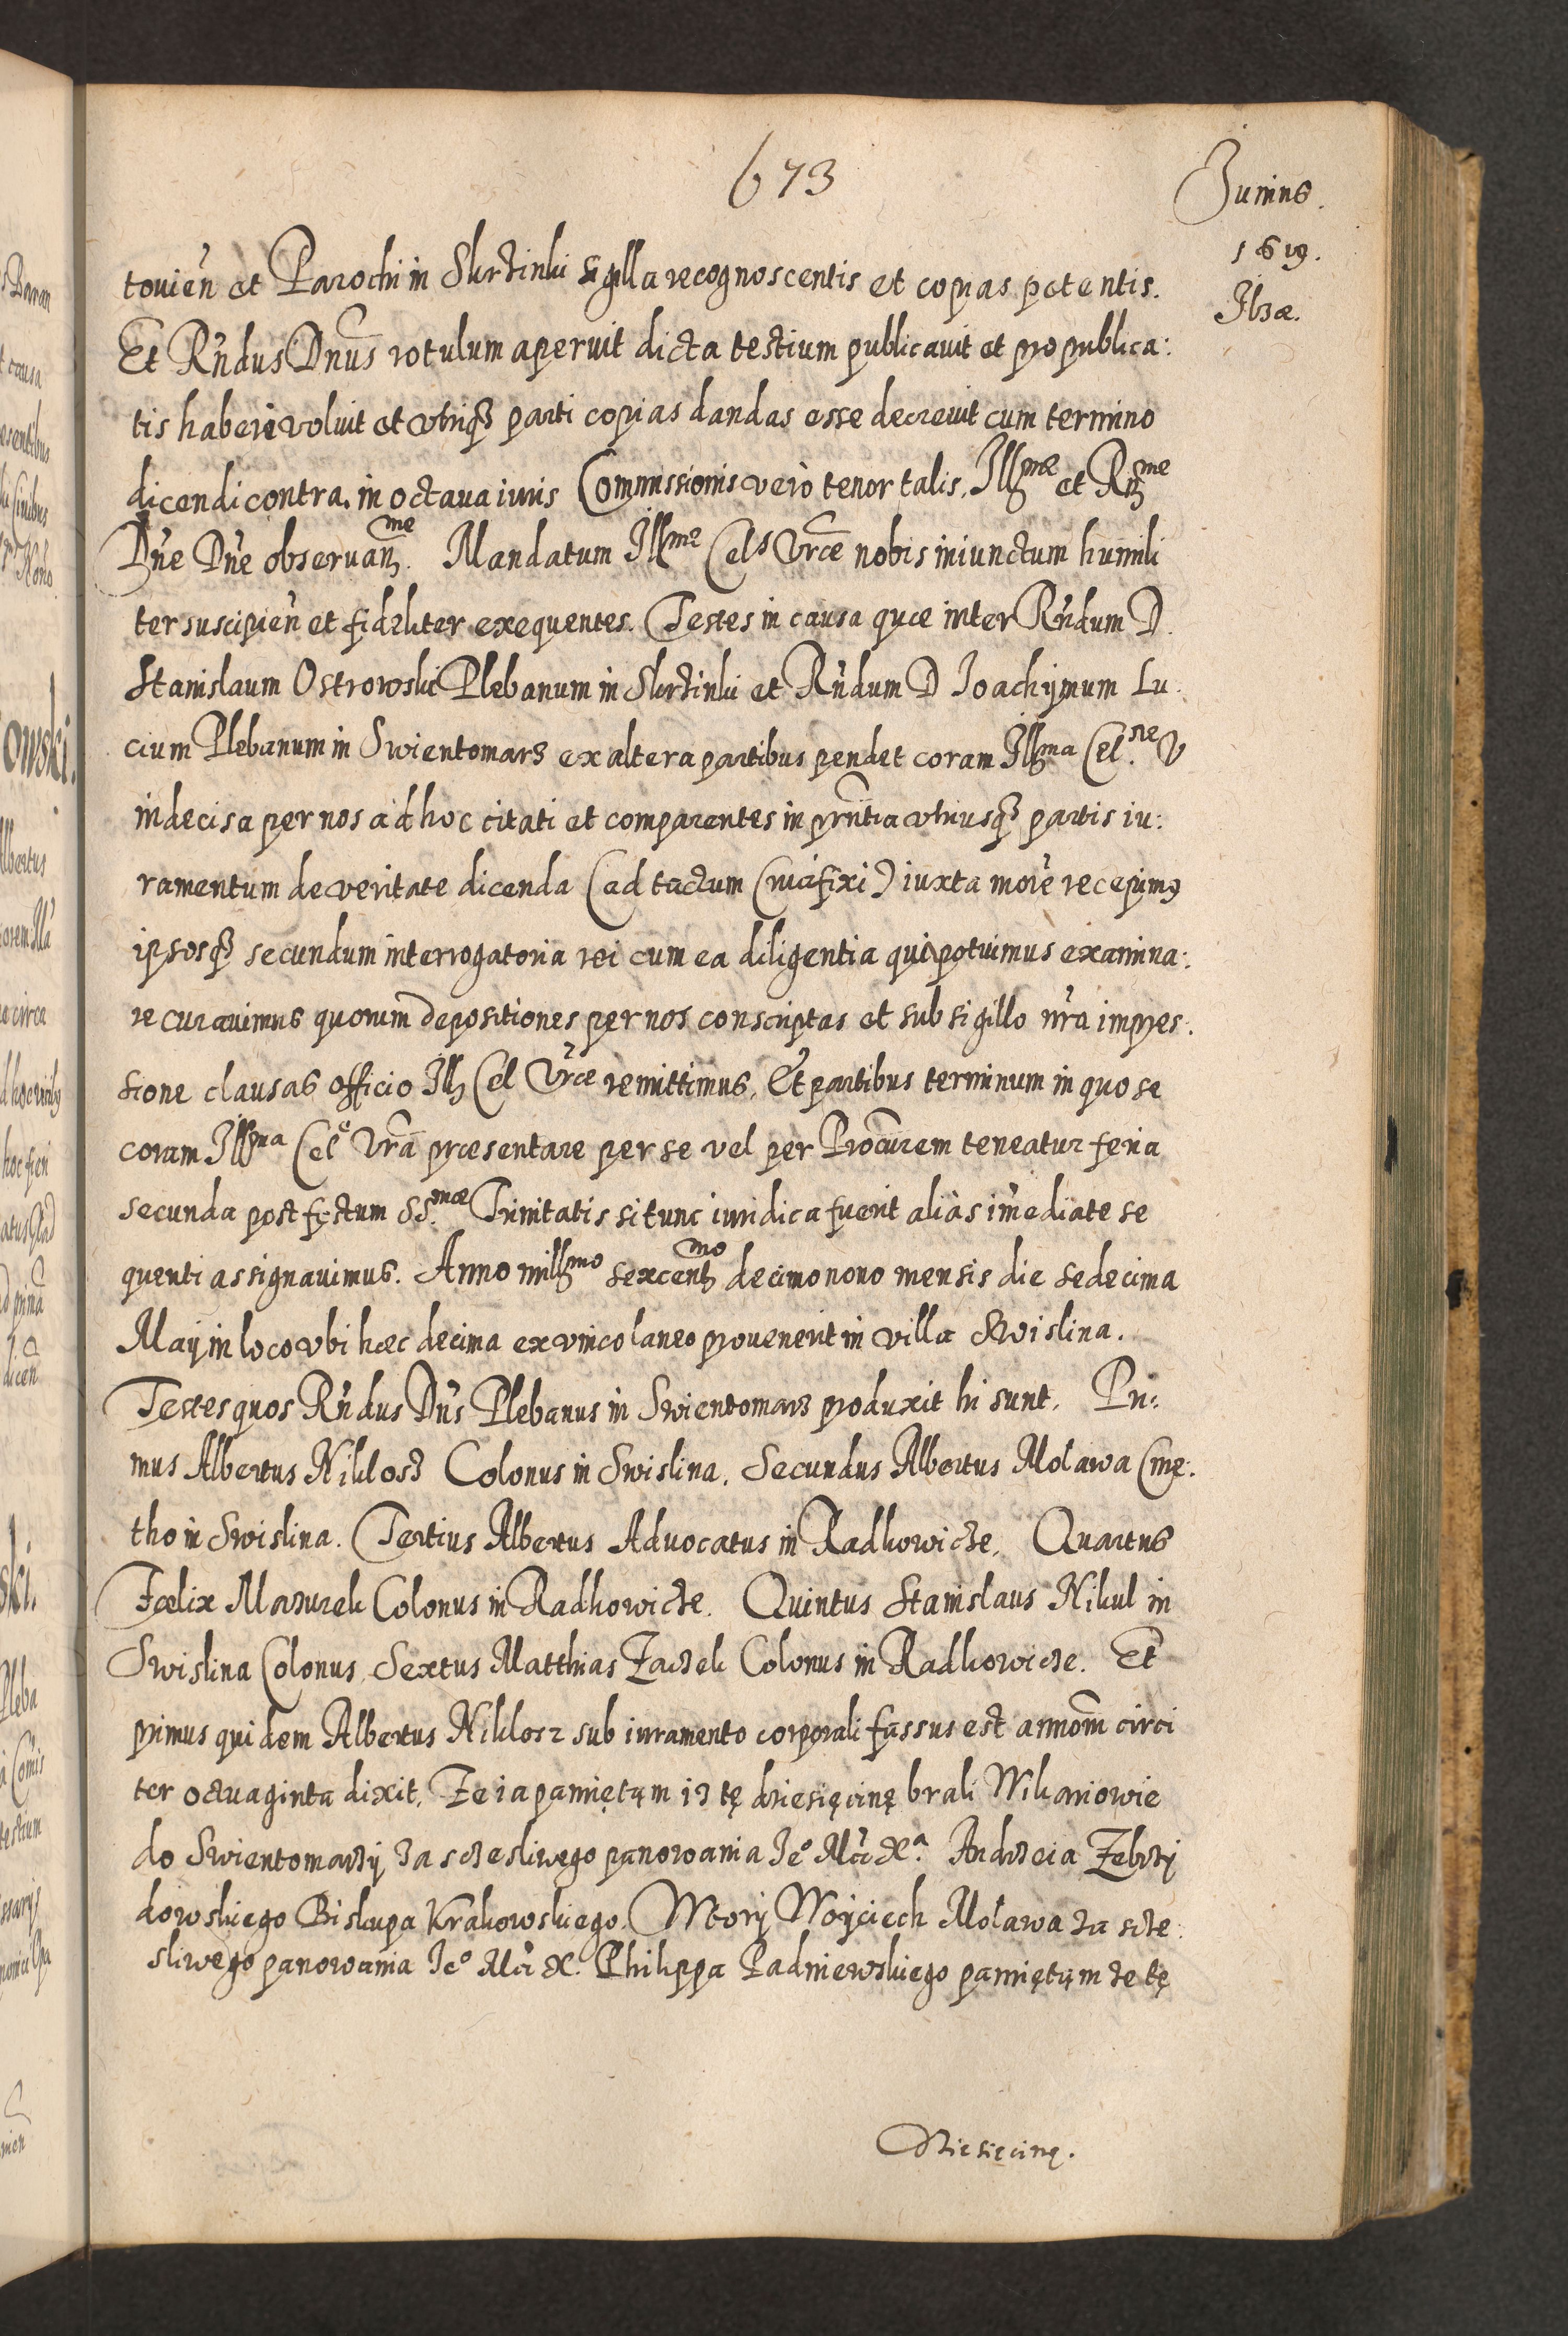 673
Junius.
1619.
Ilzæ.
touieñ et Parochi in Skrzinki sigilla recognoscentis et copias petentis.
Et Rñdus Dnus rotulum aperuit dicta testium publicauit et pro publica:
tis haberi voluit et vtriqȝ parti copias dandas esse decreuit cum termino
dicendi contra. in octaua iuris Commissionis verò tenor talis. Illmæ et Rme
Dñe Dñe obseruanme. Mandatum Illmæ Cels Vræ nobis iniunctum humili
ter suscipieñ et fideliter exequentes. Testes in causa quæ inter Rñdum D.
Stanislaum Ostrowski Plebanum in Skrzinki et Rñdum D Joachijmum Lu
cium Plebanum in Swientomarz ex altera partibus pendet coram Illma Cel.ne V
indecisa per nos ad hoc citati et comparentes in prñtia vtriusqȝ partis iu:
ramentum de veritate dicenda (ad tactum Crucifixi) iuxta morẽ recepimꝯ
ipsosqȝ secundum interrogatoria rei cum ea diligentia qui potuimus examina:
re curauimus quorum depositiones per nos conscriptas et sub sigillo nr̃a impres.
sione clausas officio Ill Cel Vræ remittimus. Et partibus terminum in quo se
coram Illma Celẽ Vr̃a præsentare per se vel per Procurem teneatur feria
secunda post festum SS.mæ Trinitatis si tunc iuridica fuerit aliàs im̃ediate se
quenti assignauimus. Anno millmo sexcentmo decimonono mensis die sedecima
Maij in loco vbi hæc decima ex vnico laneo prouenerit in villa Swislina.
Testes quos Rñdus Dñs Plebanus in Swientomarz produxit hi sunt. Pri:
mus Albertus Niklosz Colonus in Swislina. Secundus Albertus Molawa Cme:
tho in Swislina. Tertius Albertus Aduocatus in Radkowicze. Quartus
Fœlix Mazurek Colonus in Radkowicze. Quintus Stanislaus Nikul in
Swislina Colonus Sextus Matthias Zaczek Colonus in Radkowicze. Et
primus quidem Albertus Niklosz sub iuramento corporali fassus est annorm̃ circi
ter octuaginta dixit. Ze ia pamiętam iz tę dziesięcinę brali Wikariowie
do Swientomarzÿ za sczesliwego panowania Jeo Mci Xa. Andrzeia Zebrzÿ
dowskiego Biskupa Krakowskiego. Wtorÿ Woÿciech Molawa za scze
sliwego panowania Jeo Mci X. Philippa Padniewskiego pamiętam ze tę
Dziesięcinę.